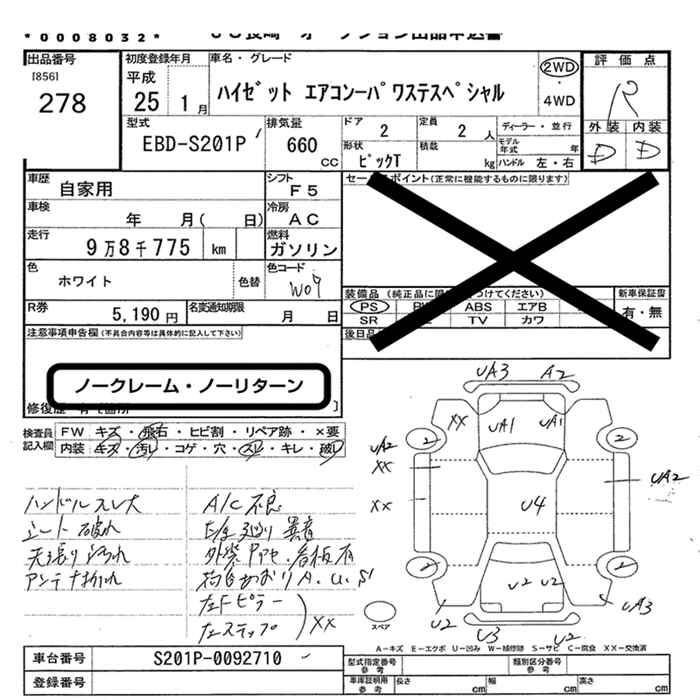 *0008032*
出品番号
[856]
278
初度登録年月
平成
25 1月
車名・グレード
ハイゼット エアコンーパワステスペシャル
2WD
・
4WD
評価点
R
外装 内装
D D
型式
EBD-S201P
排気量
660
cc
ドア
2
定員
2 人
形状
ピックT
積載
kg
ディーラー・並行
モデル年式 年
ハンドル 左・右
車歴
自家用
シフト
F5
セー ポイント(正常に機能するものに限ります)
車検
年 月( 日)
冷房
AC
走行
9万8千775 km
燃料
ガソリン
色
ホワイト
色替
色コード
W09
R券
5,190円
名変通知期限
月 日
装備品
PS
ABS エアB
SR TV カワ
新車保証書
有・無
後日品
注意事項申告欄(不具合内容等は具体的に記入して下さい)
ノークレーム・ノーリターン
修復歴
検査員
記入欄
FW キズ・飛石・ヒビ割・リペア跡・×要
内装 キズ・汚レ・コゲ・穴・スレ・キレ・破レ
ハンドルスレ大
シート破れ
天張り汚れ
アンテナ折れ
A/C不良
異音
左Fピラー
左ステップ
XX
UA3 A2
XX UA1 UA1
2 2
UA2
XX
XX
U4
UA2
2 2
U2 U2
U2 UA3
U3 U2
スペア
A-キズ E-エクボ U-凹み W-補修跡 S-サビ C-腐食 XX-交換済
車台番号
S201P-0092710
登録番号
型式指定番号
参考
類別区分番号
参考
車庫証明用
参考
長さ cm 幅 cm 高さ cm